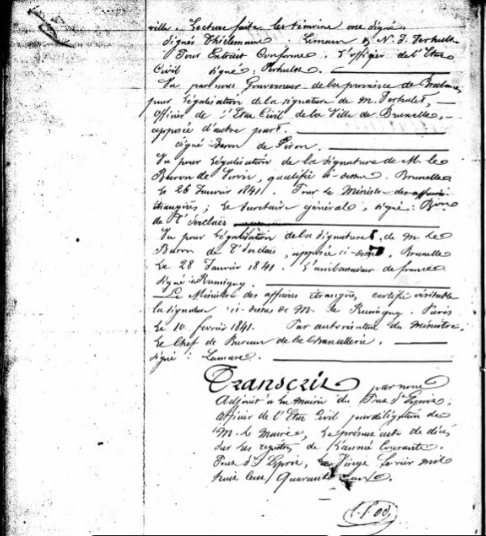 ville. Lecture faite les témoins ont signé
signés Thielemans. Lemaire & N. J. Verhulst
Pour Extrait Conforme. L'officier de l'Etat
Civil signé: Verhulst.
Vu par nous Gouverneur de la province de Brabant
pour légalisation de la signature de M. Verhulst,
Officier de l'Etat Civil de la Ville de Bruxelles,
apposée d'autre part.
signé Baron de Viron.
Vu pour légalisation de la signature de M. le
Baron de Viron, qualifié ci-dessus. Bruxelles
le 26 Janvier 1841. Pour le Ministre des affaires
étrangères; le secrétaire général, signé: Baron
de T'Serclaes
Vu pour légalisation de la signature de M le
Baron de T'Serclaes, apposée ci-dessus. Bruxelles
le 28 Janvier 1841. L'ambassadeur de france
signé: Rumigny.
Le Ministre des affaires étrangères, certifie véritable
la signature ci-dessus de M. de Rumigny. Paris
le 10 fevrier 1841. Par autorisation du Ministre,
le Chef de Bureau de la Chancellerie.
signé: Lamare.
Transcrit par nous
Adjoint à la Mairie du
officier de l'Etat Civil par délégation de
M. le Maire, le présent acte de décès
sur les registres de l'année Courante.
Vingt fevrier mil
huit cent Quarante